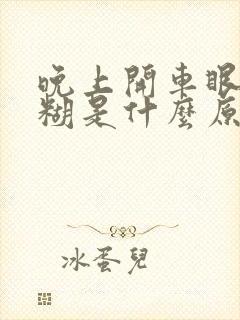 晚上開車眼
糊是什麼原
冰蛋兒